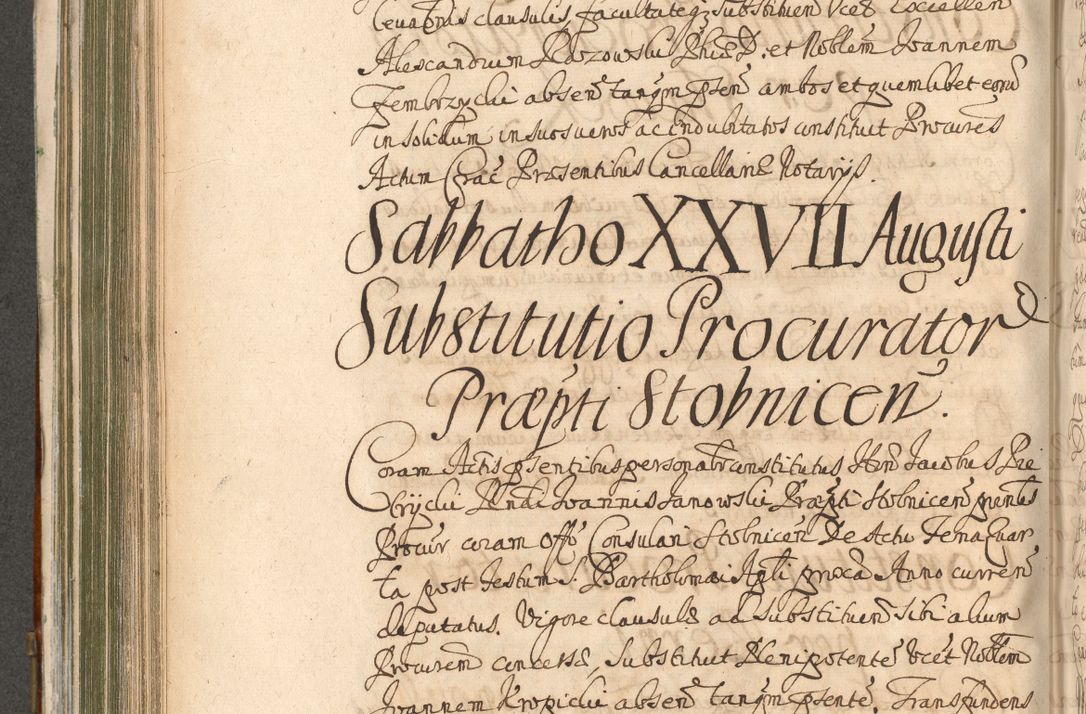 clausulis, facultateq; substituen Vcet Excellen
Alexandrum Phiæ D. et Noblem Joannem
Zembrzyclii absen tanqm psen ambos et quemlibet eorū
in solidum in suos veros ac indubitatos constituit Procures
Actum Crac Præsentibus Cancellariæ Notarijs.
Sabbatho XXVII Augusti
Substitutio Procurator
Præpti Stobnicen.
Coram Actis psentibus personalr constitutus Hon Jacobus
Rndi Joannis Janowski Præpti Stobnicen
Procur coram Offo Consulari Stobnicen De Actu Feria Quar
ta post Festum S. Bartholomæi Apli proxa Anno curren
deputatus. Vigore clausulæ ad substituen sibi alium
Procurem concessæ, substituit Plenipotente Vcet Noblem
Joannem Kropicki absen tanqm psente. Transfundens